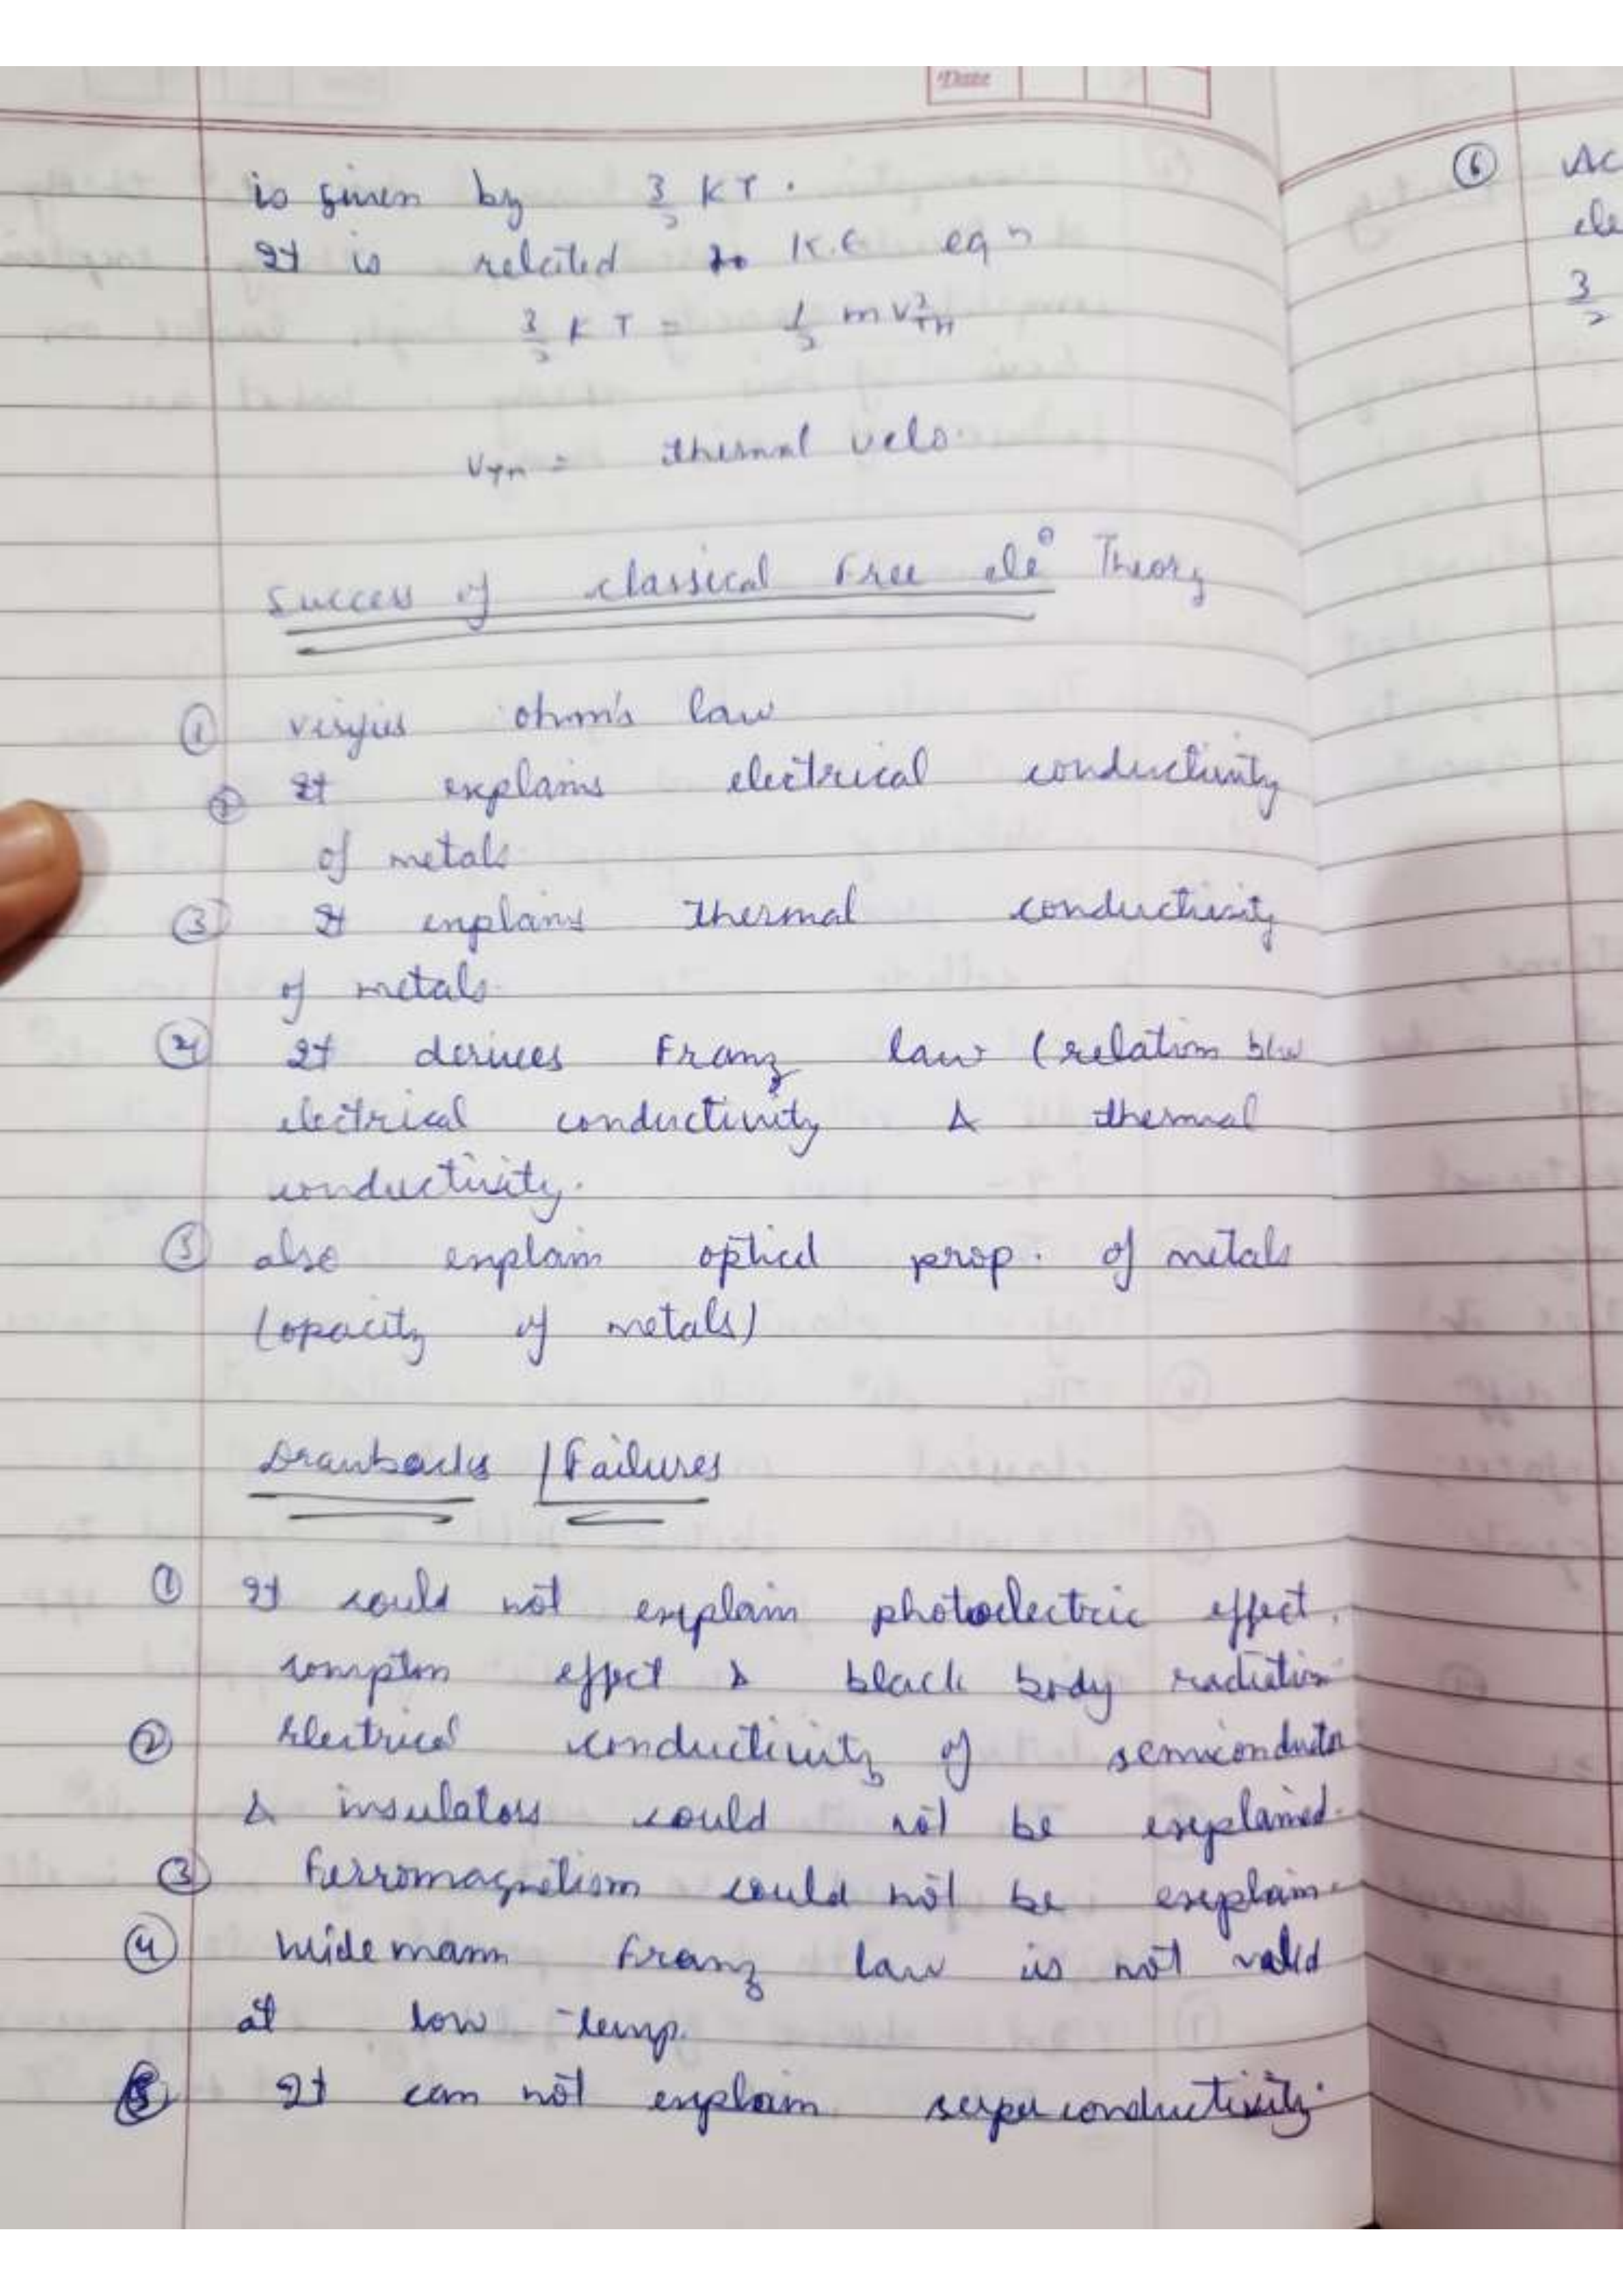 Date
is given by 3/2 KT.
It is related to K.E eqn
3/2 KT = 1/2 mv²TH
VTH = thermal velo.
Success of classical Free ele⊖ Theory
① verifies ohm's law
② It explains electrical conductivity
of metals
③ It explains thermal conductivity
of metals.
④ It derives Franz law (relation b/w
electrical conductivity & thermal
conductivity.
⑤ also explain optical prop. of metals
(opacity of metals)
Drawbacks / Failures
① It could not explain photoelectric effect,
compton effect & black body radiation
② Electrical conductivity of semiconductor
& insulators could not be explained.
③ Ferromagnetism could not be explain.
④ Widemann Franz law is not valid
at low temp.
⑤ It can not explain superconductivity.
⑥ Ac
ele
3/2